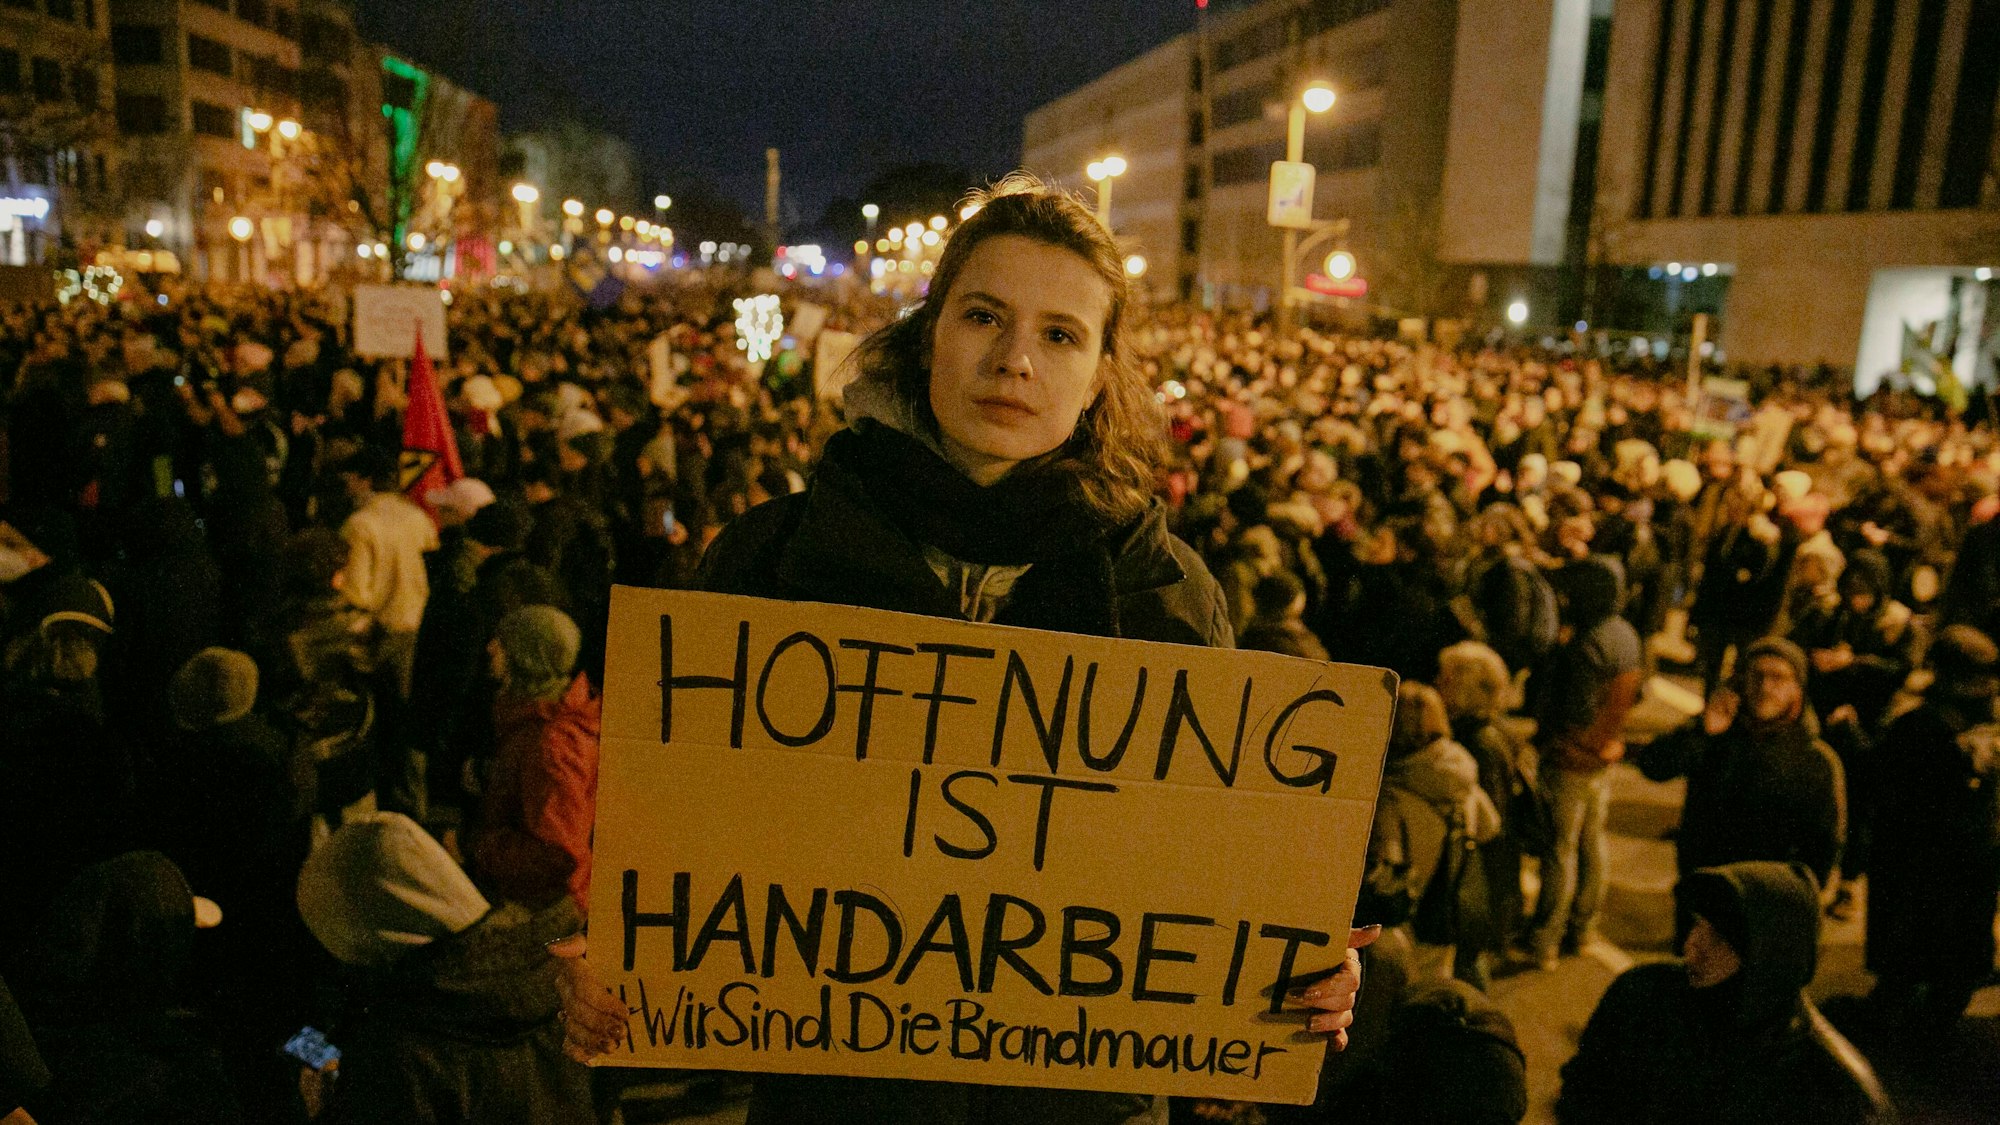 HOFFNUNG
IST
HANDARBEIT
#WirSindDieBrandmauer